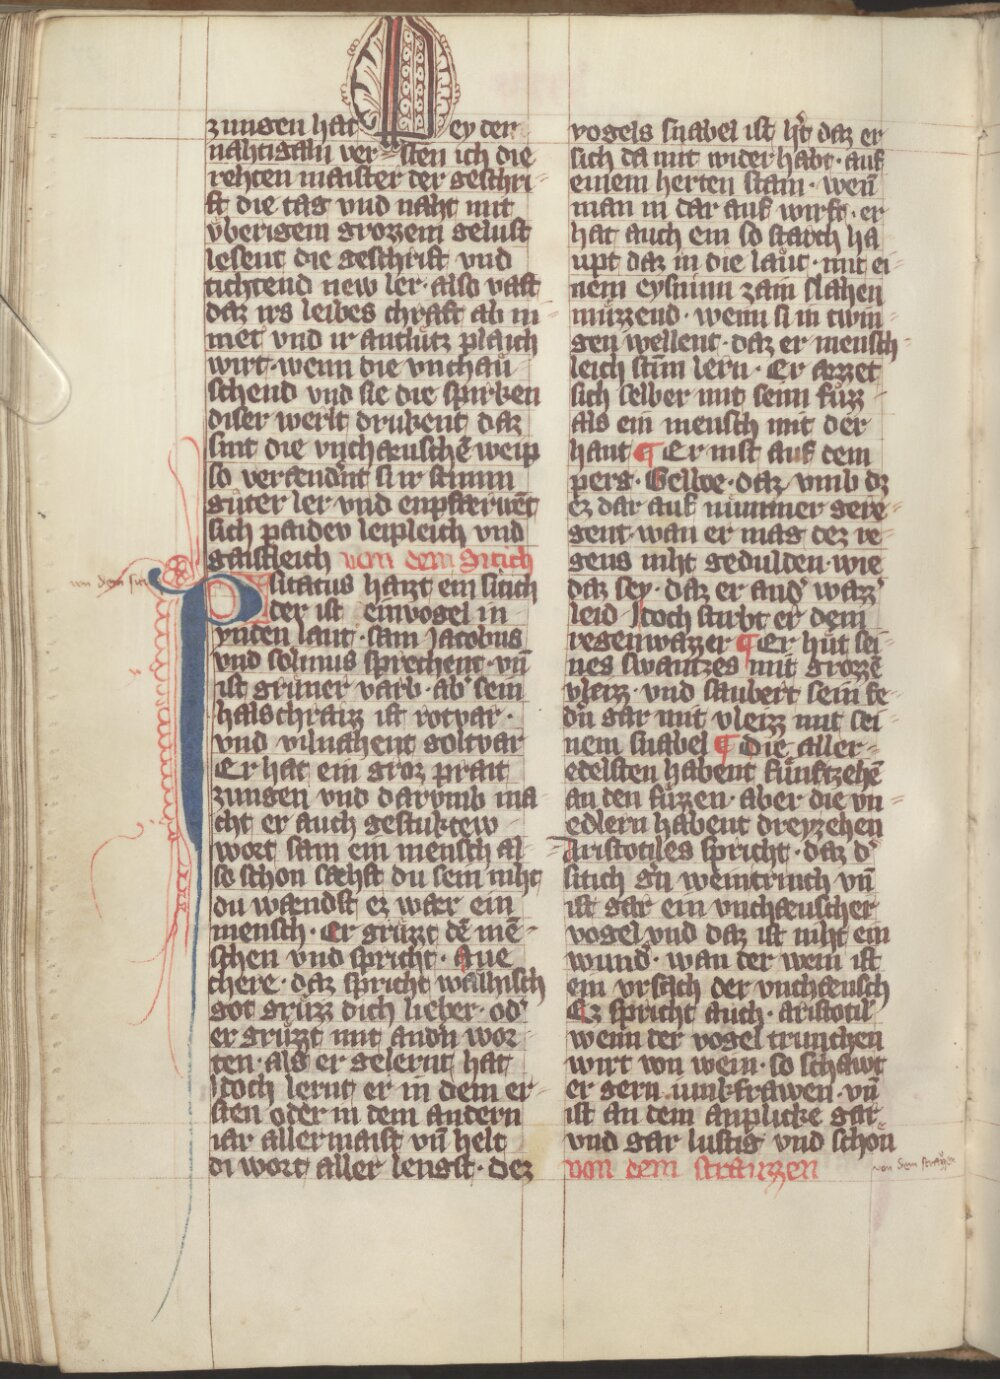 zungen hat Bey der
nahtigaln ver=sten ich die
rehten maister der geschri-
ft die tag vnd naht mit
vͤberigem grozzem gelust
lesent die geschrift vnd
tichtend new ler· also vast
daz irs leibes chraft ab ni-
met vnd ir antlütz plaich
wirt· wenn die vnchaü-
schend vnd sie die spirken
diser werlt drukent daz
sint die vncháuschē weip
so verændnt si ir stimm
güter ler vnd enpfærwēt
sich paidev leipleich vnd
gaistleich von dem Sitich
von dem sit
Psitatus haizt ein sitich
der ist ein vogel in
ynden lant· sam Jacobus
vnd solinus sprechent· vn̄
ist grüner varb· ab' sein
halschraiz ist rotvar·
vnd vilnahent goltvar
Er hat ein groz prait
zungen vnd darvmb ma-
cht er auch gestuktew
wort sam ein mensch al-
so schon sæhst du sein niht
du wændst ez wær ein
mensch· Er grüzzt dē mē-
schen vnd spricht· aue
chere· daz spricht walhisch
got grüzz dich lieber· od'
er grüzzt mit andn wor-
ten· als er gelernt hat
Jdoch lernt er in dem er-
sten oder in dem andern
iar allermaist vn̄ helt
di wort aller lengst· dez
vogels snabel ist h't daz er
sich da mit wider habt· auf
einem herten stain· wen̄
man in dar auf wirft· er
hat auch ein so starch ha-
upt daz in die laüt· mit ei-
nem eysninn zain slahen
müzzend· wenn si in twin-
gen wellent· daz er mensch-
leich stim̄ lern· Er atzzet
sich selber mit seim füzz-
als ein mensch mit der
hant ¶ Er nist auf dem
perg· Gelboe· daz vmb dz
ez dar auf nimmer gere-
gent· wan er mag dez re-
gens niht gedulden· wie
daz sey· daz er and' wazz'
leid Jdoch stirbt er dem
regenwazzer ¶ Er hüt sei-
nes swantzes mit grozzē
vleizz· vnd saubert sein fe-
dn gar mit vleizz mit sei-
nem snabel ¶ Die aller-
edelsten habent fünftzehē
an den füzzen· aber die vn-
edlern habent dreyzehen
Aristotiles spricht· daz d'
sitich gn weintrinch vn̄
ist gar ein vnchæuscher
vogel vnd daz ist niht ein
wund'· wan der wein ist
ein vrsach der vnchæusch
Ez spricht auch· aristotil'
wenn der vogel trunchen
wirt von wein· so schawt
er gern iunkfrawen· vn̄
ist an dem anplicke gar
vnd gar lustig vnd schon
von dem strauzzen
von dem strauzzen